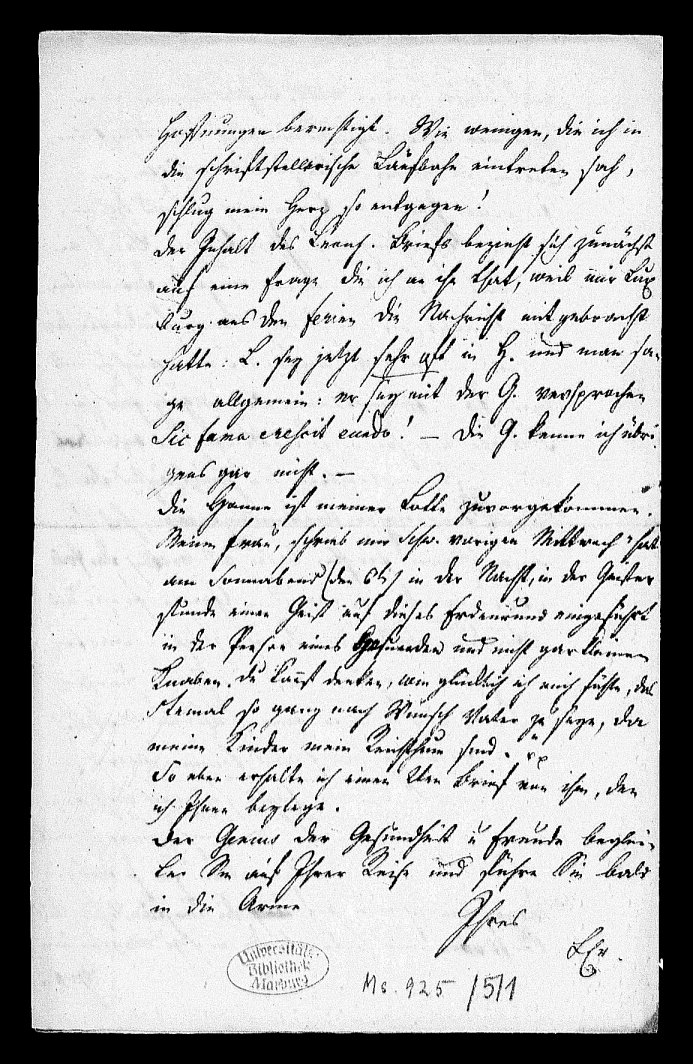 Hoffnungen berechtigt. Wie wenigen, die ich in
die schriftstellerische Laufbahn eintreten sah,
schlug mein Herz so entgegen!
Der Inhalt des Leonh. Briefs bezieht sich zunächst
auf eine Frage die ich an ihn that, weil mir Lux
burg aus den Ferien die Nachricht mitgebracht
hatte: L. sey jetzt sehr oft in H. und man sa-
ge allgemein: er sey mit der G. versprochen
Sic fama crescit eundo! — Die G. kenne ich übri
gens gar nicht. —
Die ist meiner Lotte zuvorgekommen.
Meine Frau, schrieb mir Schw. vorigen Mittwoch "hat
am Sonnabend (den 6t) in der Nacht, in der Geister
stunde einen Geist auf dieses Erdenrund eingeführt
in der Person eines Gesunden und nicht gar kleinen
Knaben. Du kannst denken, wie glücklich ich mich fühle, das
mal so ganz nach Wunsch Vater zu seyn, da
meine Kinder mein Reichthum sind."
So eben erhalte ich einen 2ten Brief von ihm, den
ich Ihnen beylege.
Der Genius der Gesundheit u Freude beglei-
te Sie auf Ihrer Reise und führe Sie bald
in die Arme
Ihres
Universitäts-
Bibliothek
Marburg
Ms. 925 /5/1